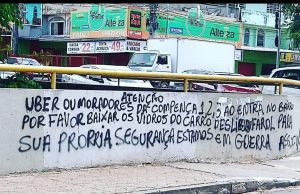 Alteza
Alteza
22
49
ATENÇÃO
UBER OU MORADORES DE COMPENÇA 1,2,3 AO ENTRA NO BAIRO
POR FAVOR BAIXAR OS VIDROS DO CARRO DESLIGA FAROL PARA
SUA PRORRIA SEGURANÇA ESTAMOS EM GUERRA